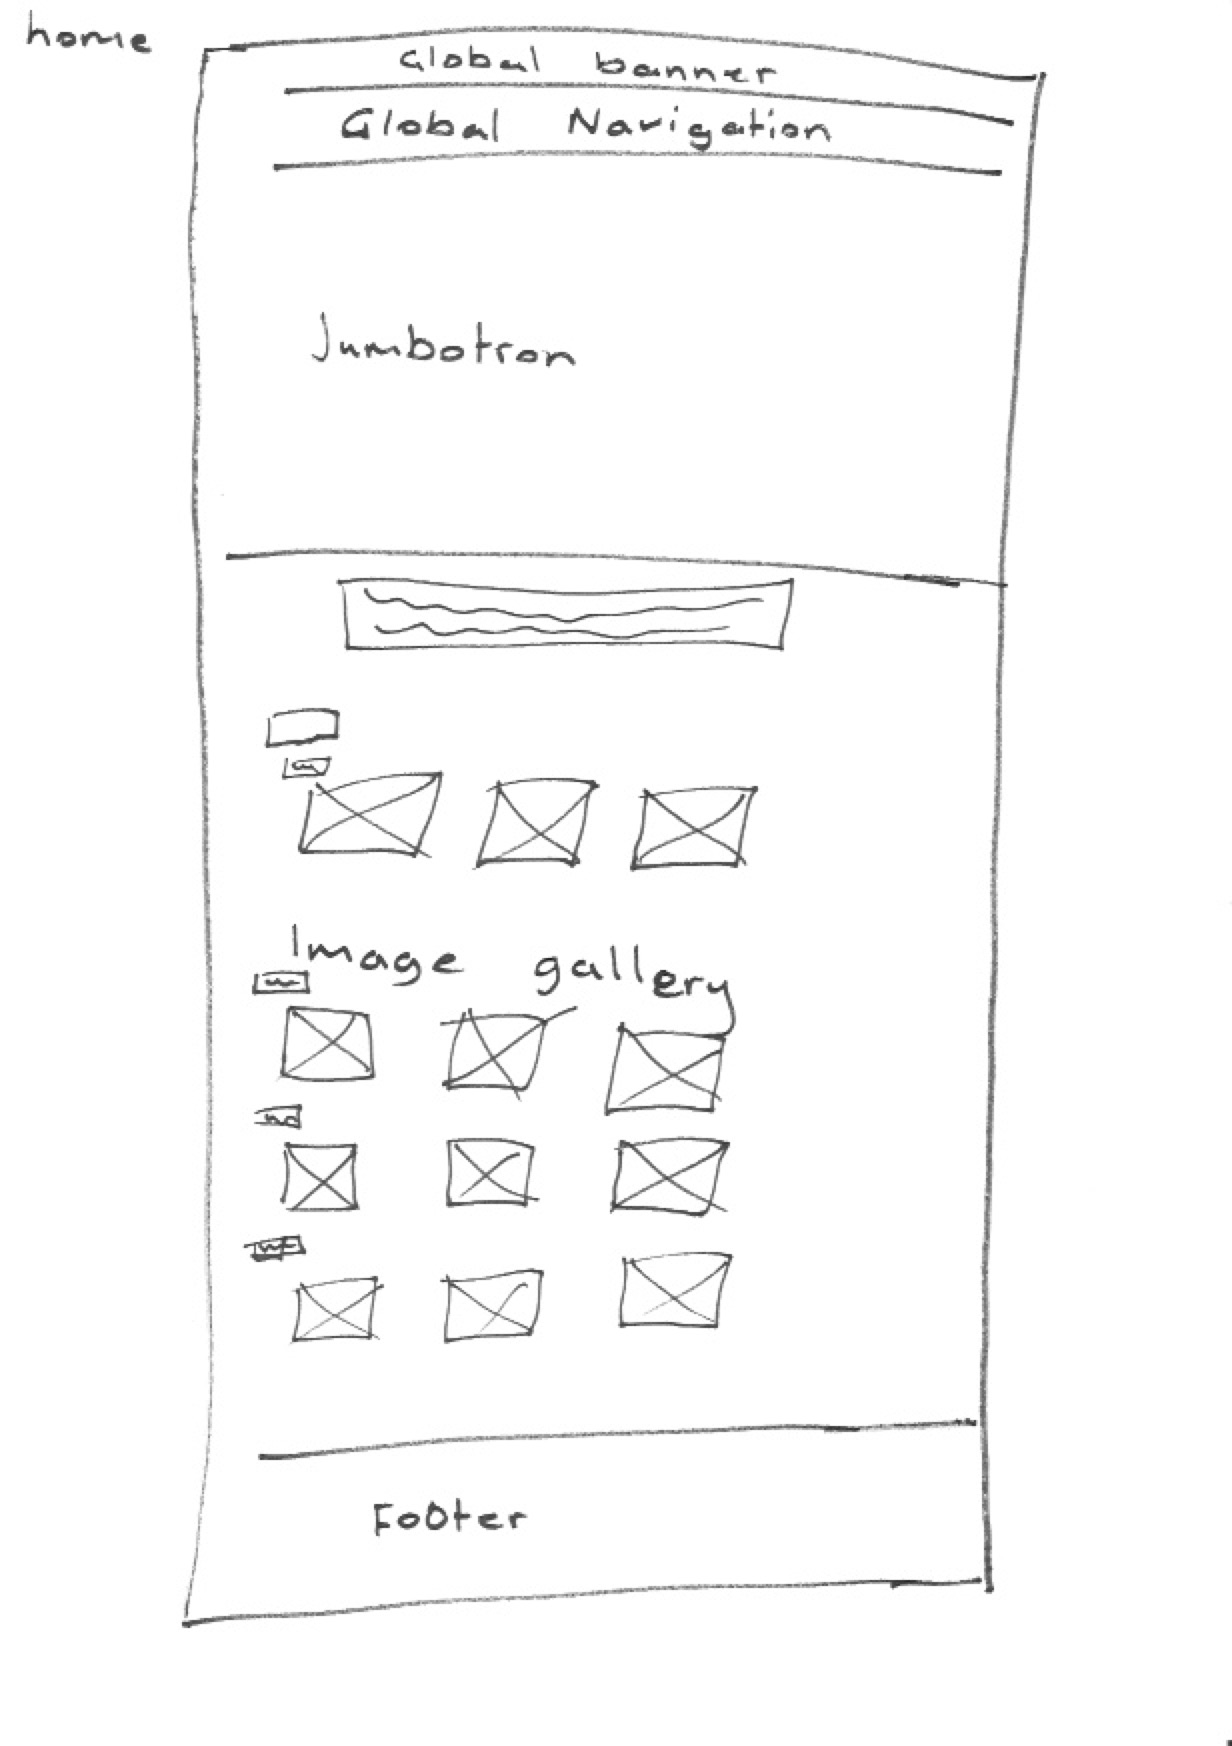 home
Global banner
Global Navigation
Jumbotron
Image gallery
Footer